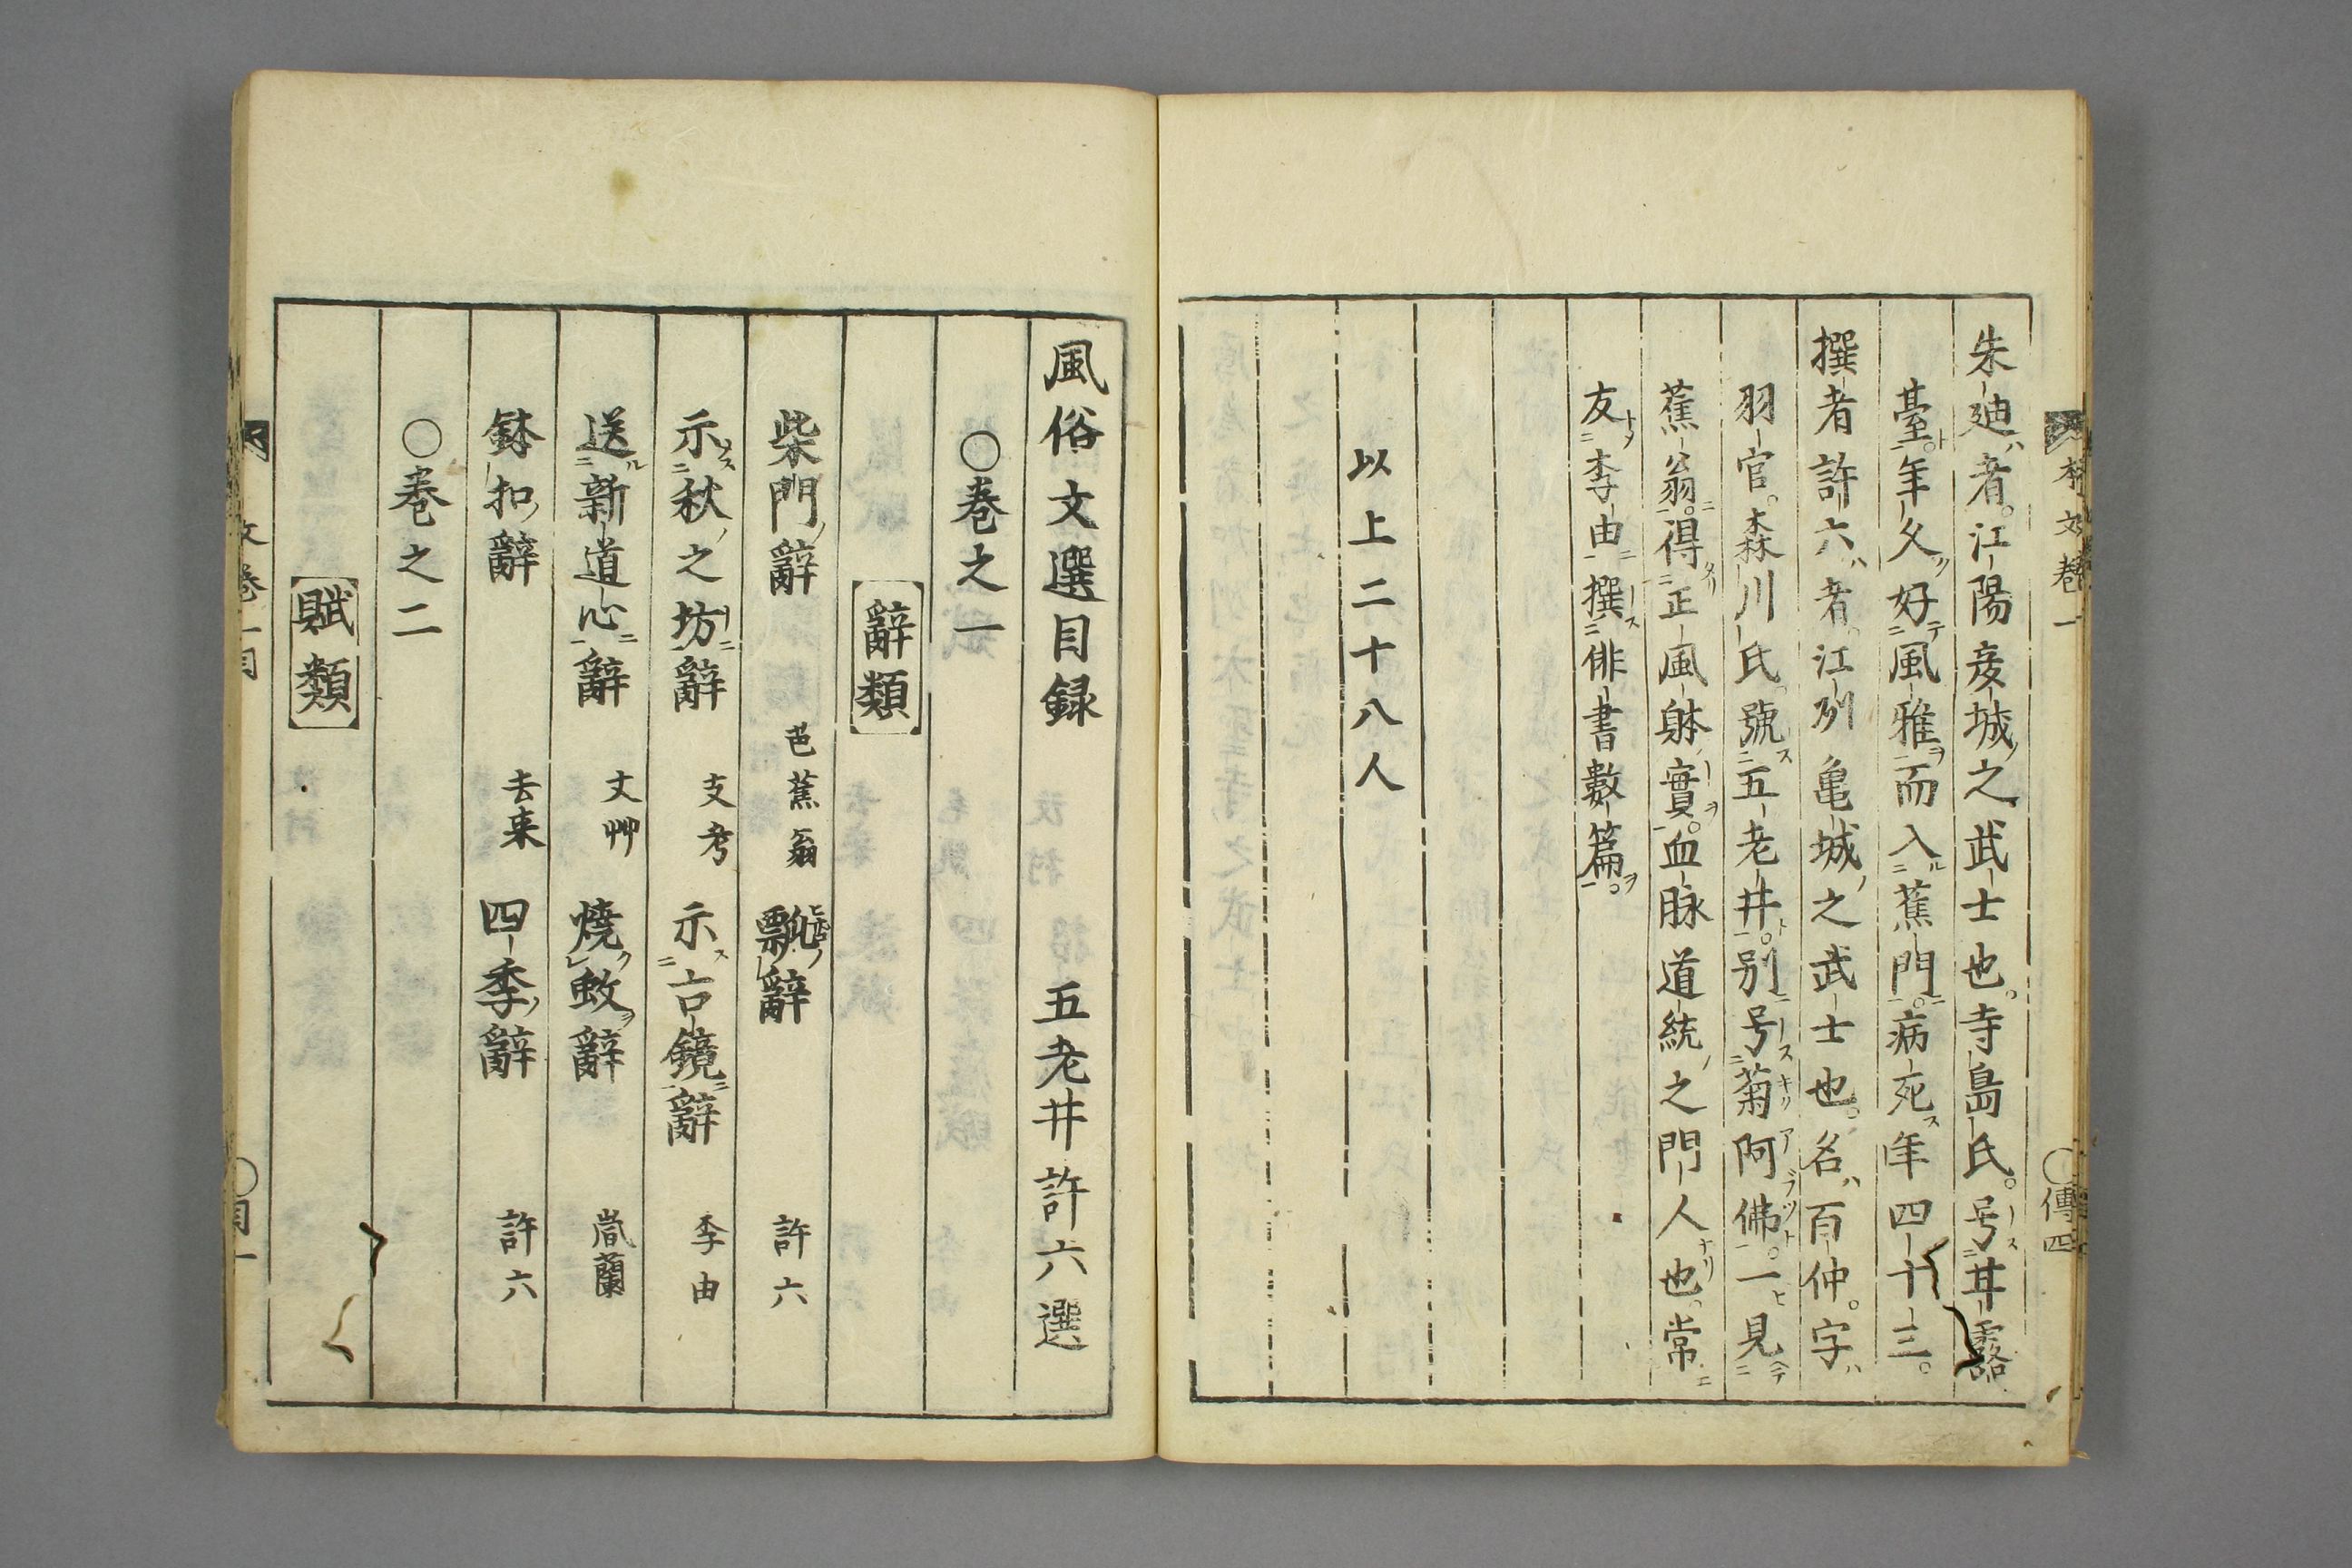 朱廸ハ者。江陽㾱城ノ之武士也。寺島氏。号ス井露
臺ト。年久ノ好テ風雅ヲ而入ル蕉門ニ。病死ス年四十三。
撰者許六ハ者。江刕亀城ノ之武士也。名ハ百仲。字ハ
羽官。森川氏。號ス五老井ト。別号ス菊阿佛ト。一見
蕉翁ニ。得タリ正風躰ノ實ヲ。血脉道統ノ之門人也。常ニ
友トメ李由ニ撰ス俳書數篇ヲ。
以上二十八人
傳四
風俗文選目録 五老井許六選
○巻之一
辭類
柴門ノ辭 芭蕉翁 瓢ノ辭 許六
示ス秋ノ之坊ニ辭 支考 示ス古鏡ニ辭 李由
送ル新道心ニ辭 丈艸 焼ク蚊ヲ辭 嵐蘭
鉢扣ノ辭 去来 四季ノ辭 許六
○巻之二
賦類